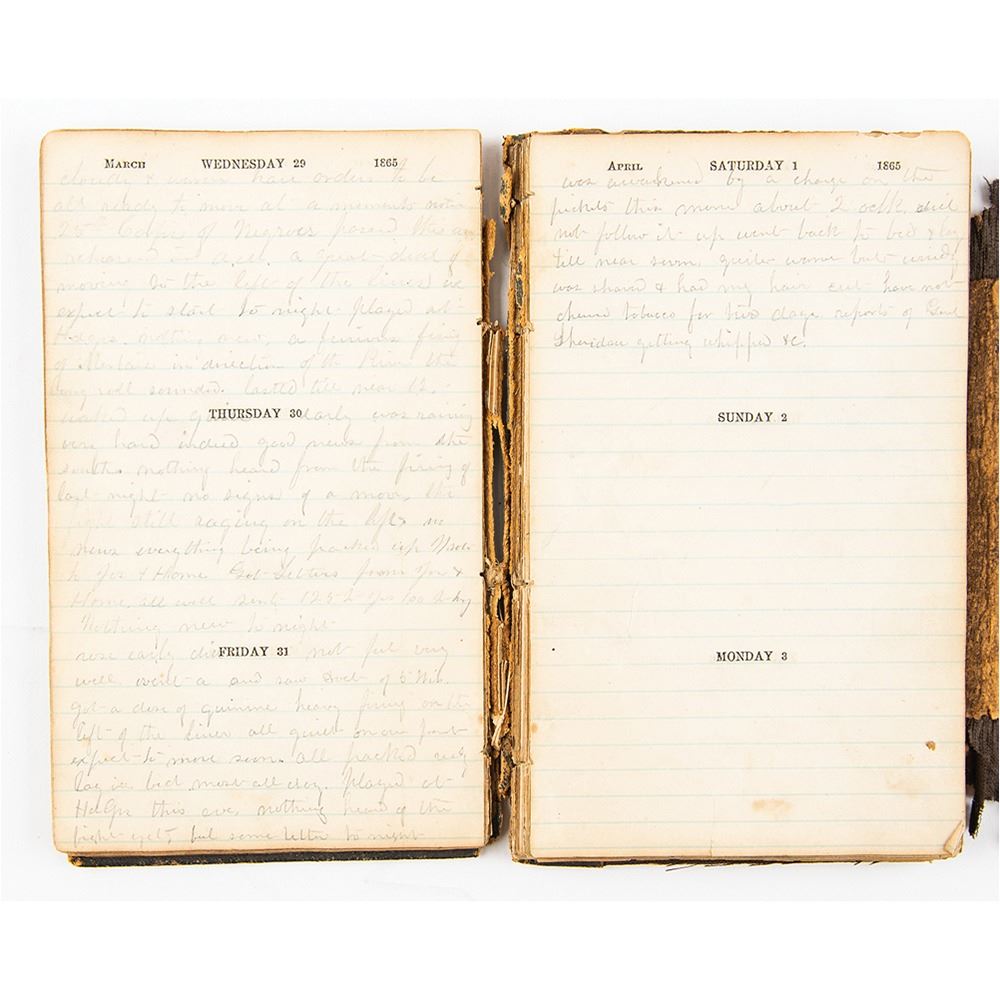 March WEDNESDAY 29 1865
cloudy & warm have orders to be
all ready to move at a moments notice
25th Corps of Negroes passed this
rehearsed in a great deal of
moving to the left of the lines we
expect to start to night played at
Hdqrs. nothing new, a furious firing
of in direction of the River the
very roll sounded. lasted till near 12.
THURSDAY 30
waked up early was raining
very hard indeed good news from the
south. nothing heard from the firing of
last night no signs of a move, the
fight still raging on the left no
news everything being packed up
& Home Got letters from &
Home, all well sent
Nothing new to night
FRIDAY 31
rose early did not feel very
well and saw Doct of 5" Wis.
got a dose of quinine heavy firing on the
left of the lines all quiet on our front
expect to move soon. all packed
lay in bed most all day. played at
HdQrs this eve, nothing heard of the
fight yet, but some letter to night
April SATURDAY 1 1865
was awakened by a charge on the
pickets this morn about 2 oclk, did
not follow it up went back to bed & lay
till near seven, quite warm but windy
was shaved & had my hair cut have not
chewed tobacco for two days reports of Genl
Sheridan getting whipped &c.
SUNDAY 2
MONDAY 3